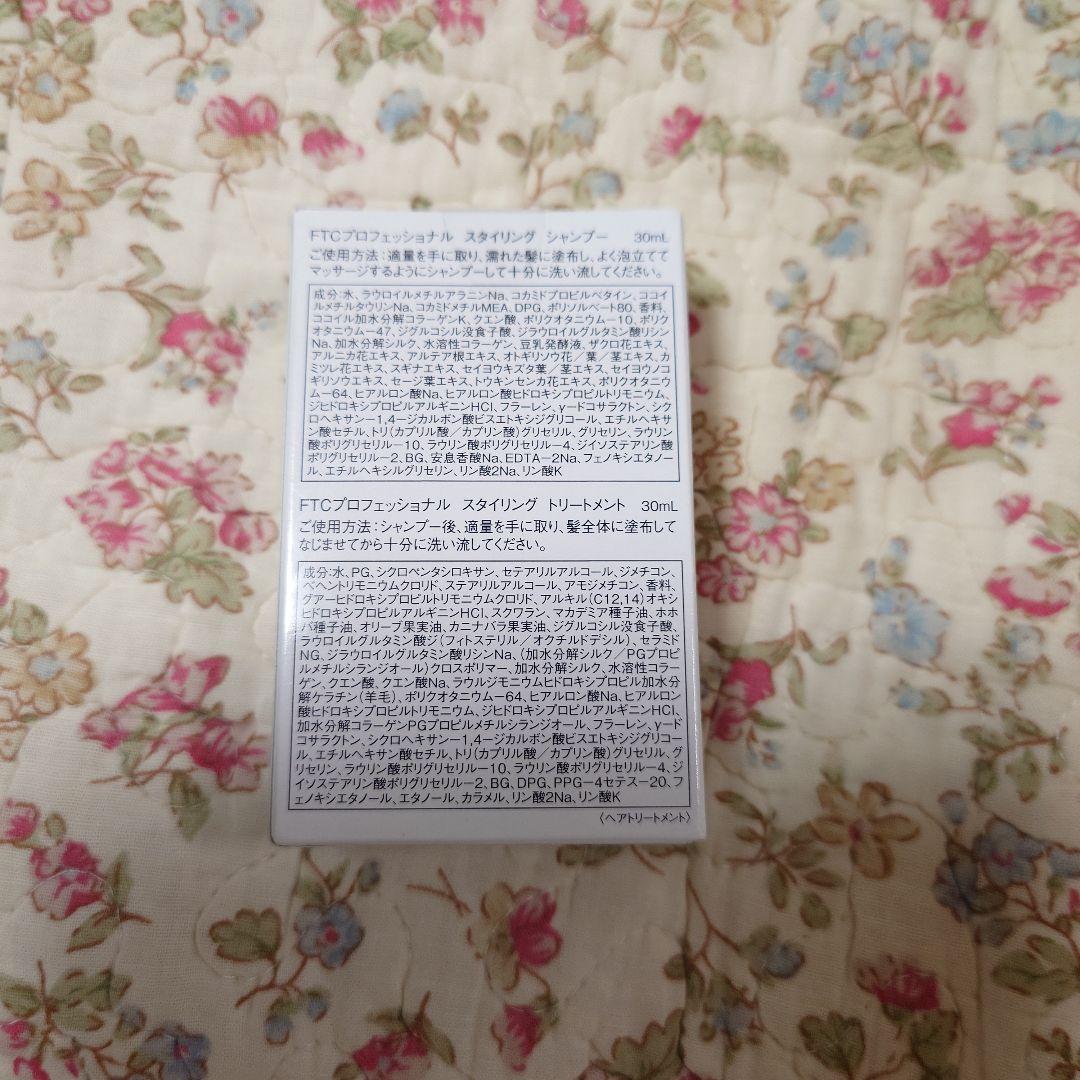 FTCプロフェッショナル スタイリング シャンプー 30mL
ご使用方法:適量を手に取り、濡れた髪に塗布し、よく泡立てて
マッサージするようにシャンプーして十分に洗い流してください。
成分:水、ラウロイルメチルアラニンNa、コカミドプロピルベタイン、ココイ
ルメチルタウリンNa、コカミドメチルMEA、DPG、ポリソルベート80、香料、
ココイル加水分解コラーゲンK、クエン酸、ポリクオタニウム-10、ポリク
オタニウム-47、ジグルコシル没食子酸、ジラウロイルグルタミン酸リシン
Na、加水分解シルク、水溶性コラーゲン、豆乳発酵液、ザクロ花エキス、
アルニカ花エキス、アルテア根エキス、オトギリソウ花/葉/茎エキス、カ
ミツレ花エキス、スギナエキス、セイヨウキズタ葉/茎エキス、セイヨウノコ
ギリソウエキス、セージ葉エキス、トウキンセンカ花エキス、ポリクオタニウ
ム-64、ヒアルロン酸Na、ヒアルロン酸ヒドロキシプロピルトリモニウム、
ジヒドロキシプロピルアルギニンHCl、フラーレン、γ-ドコサラクトン、シク
ロヘキサン-1,4-ジカルボン酸ビスエトキシジグリコール、エチルヘキサ
ン酸セチル、トリ(カプリル酸/カプリン酸)グリセリル、グリセリン、ラウリン
酸ポリグリセリル-10、ラウリン酸ポリグリセリル-4、ジイソステアリン酸
ポリグリセリル-2、BG、安息香酸Na、EDTA-2Na、フェノキシエタノー
ル、エチルヘキシルグリセリン、リン酸2Na、リン酸K
FTCプロフェッショナル スタイリング トリートメント 30mL
ご使用方法:シャンプー後、適量を手に取り、髪全体に塗布して
なじませてから十分に洗い流してください。
成分:水、PG、シクロペンタシロキサン、セテアリルアルコール、ジメチコン、
ベヘントリモニウムクロリド、ステアリルアルコール、アモジメチコン、香料、
グアーヒドロキシプロピルトリモニウムクロリド、アルキル(C12,14)オキシ
ヒドロキシプロピルアルギニンHCl、スクワラン、マカデミア種子油、ホホ
バ種子油、オリーブ果実油、カニナバラ果実油、ジグルコシル没食子酸、
ラウロイルグルタミン酸ジ(フィトステリル/オクチルドデシル)、セラミド
NG、ジラウロイルグルタミン酸リシンNa、(加水分解シルク/PGプロピ
ルメチルシランジオール)クロスポリマー、加水分解シルク、水溶性コラー
ゲン、クエン酸、クエン酸Na、ラウルジモニウムヒドロキシプロピル加水分
解ケラチン(羊毛)、ポリクオタニウム-64、ヒアルロン酸Na、ヒアルロン
酸ヒドロキシプロピルトリモニウム、ジヒドロキシプロピルアルギニンHCl、
加水分解コラーゲンPGプロピルメチルシランジオール、フラーレン、γ-ド
コサラクトン、シクロヘキサン-1,4-ジカルボン酸ビスエトキシジグリコー
ル、エチルヘキサン酸セチル、トリ(カプリル酸/カプリン酸)グリセリル、グ
リセリン、ラウリン酸ポリグリセリル-10、ラウリン酸ポリグリセリル-4、ジ
イソステアリン酸ポリグリセリル-2、BG、DPG、PPG-4セテス-20、フ
ェノキシエタノール、エタノール、カラメル、リン酸2Na、リン酸K
〈ヘアトリートメント〉